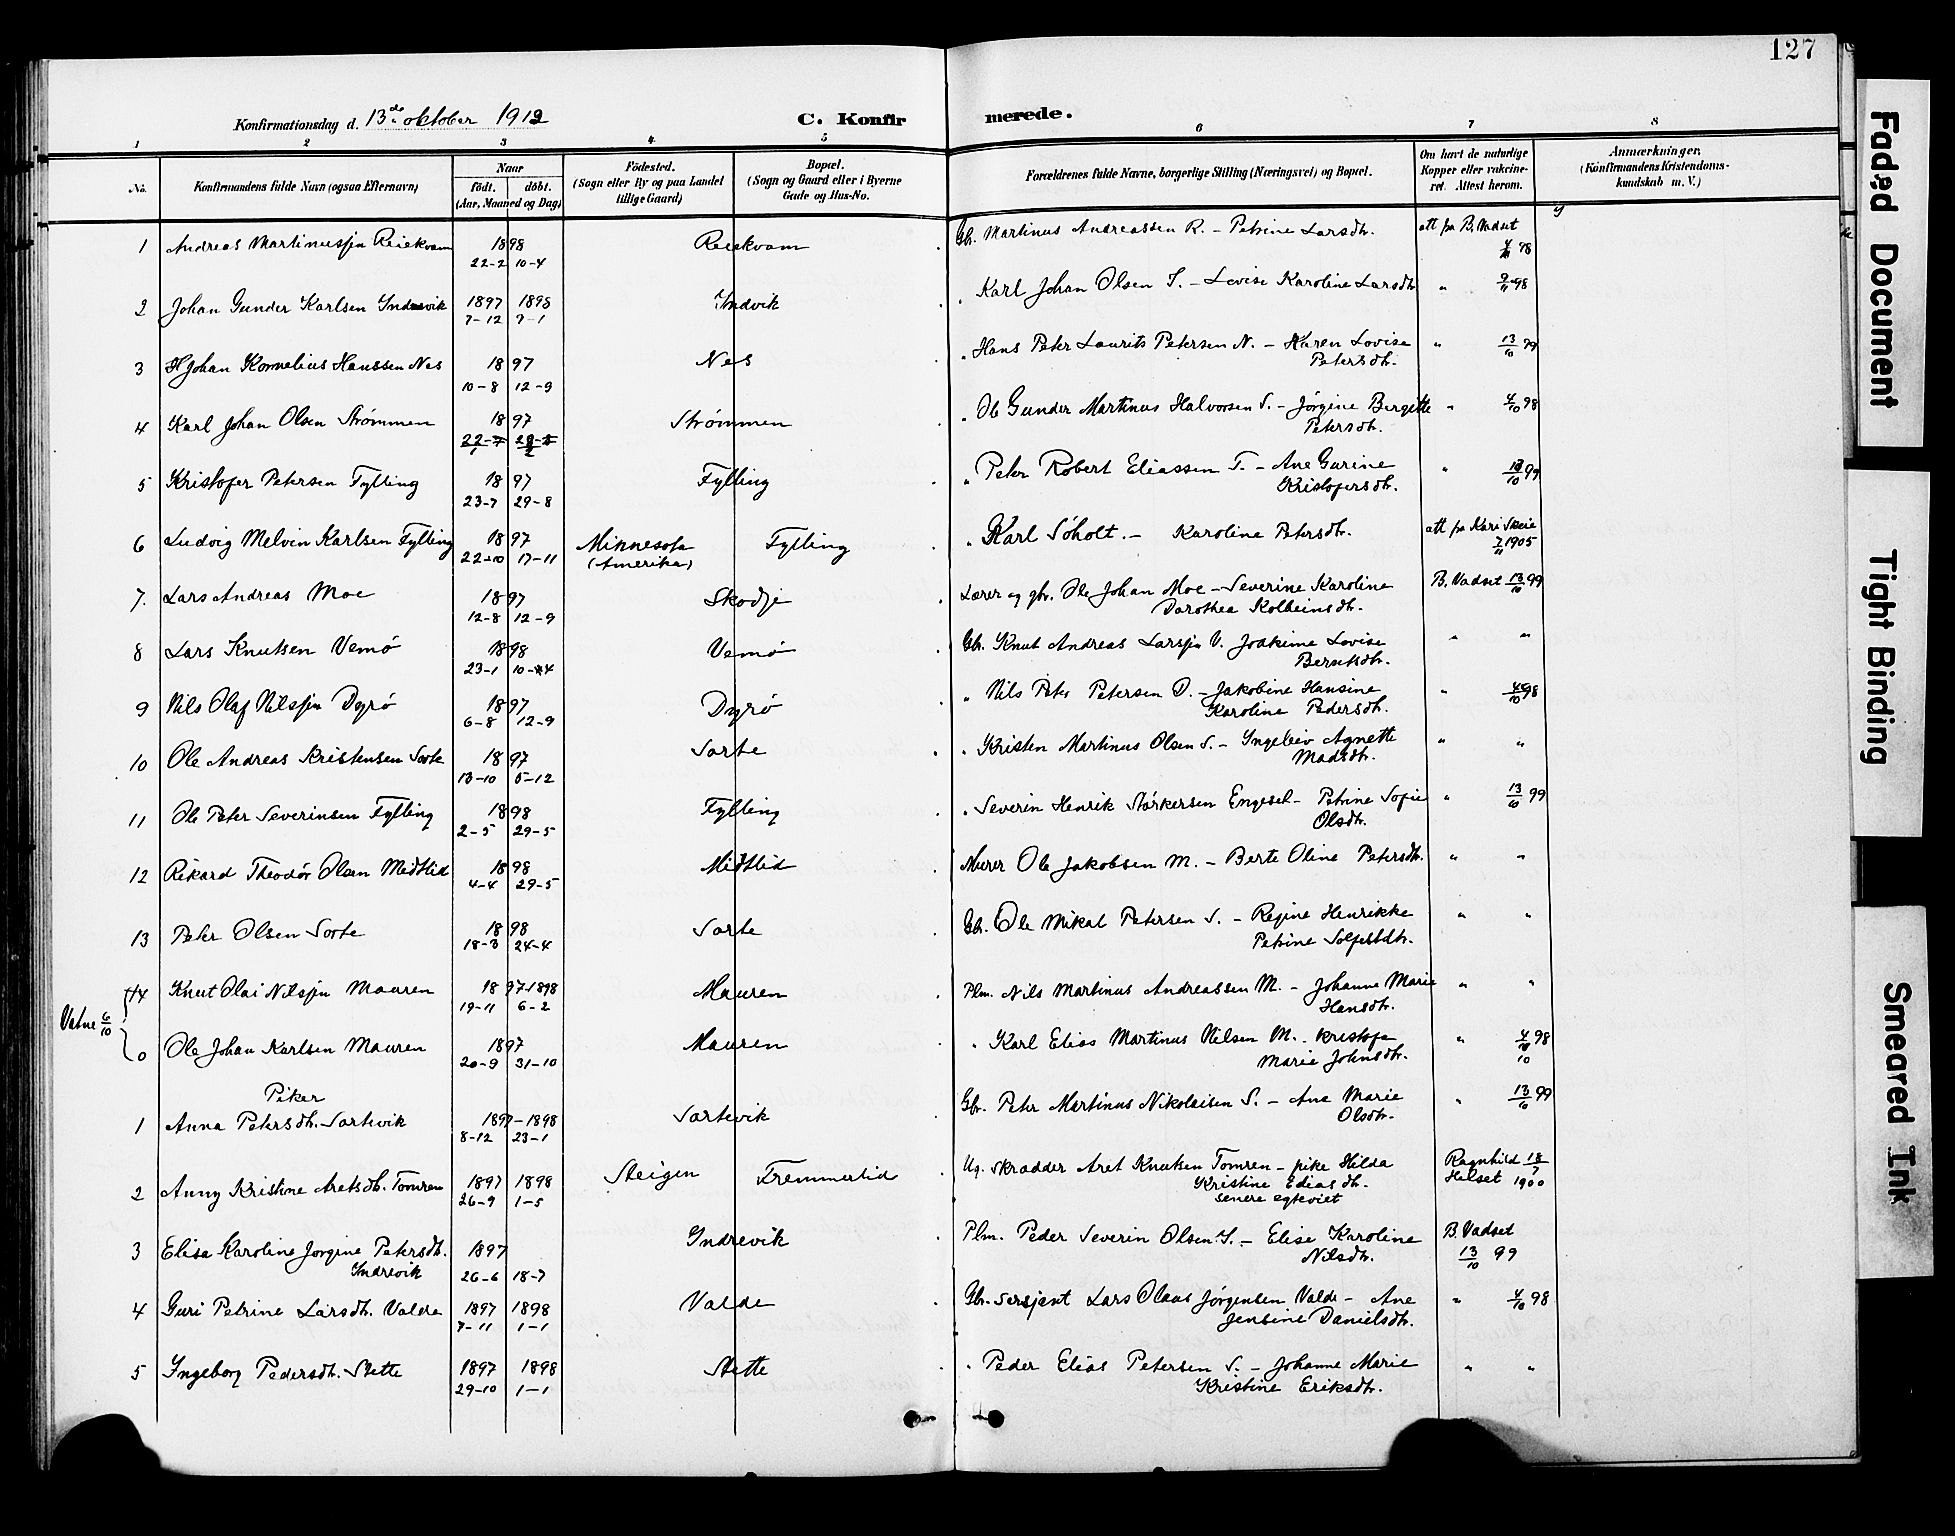 127
Konfirmationsdag d. 13de oktober 1912 C. Konfirmerede.
1 2 3 4 5 6 7 8
No. Konfirmandens fulde Navn (ogsaa Efternavn) Naar født. døbt. (Aar, Maaned og Dag) Fødested. (Sogn eller By og paa Landet tillige Gaard) Bopæl. (Sogn og Gaard eller i Byerne Gade og Hus-No. Forældrenes fulde Navne, borgerlige Stilling (Næringsvei) og Bopæl. Om havt de naturlige Kopper eller vakcineret. Attest herom. Anmærkninger, (Konfirmandens Kristendomskundskab m. V.)
1 Andreas Martinussøn Reiekvam 1898 22-2 10-4 Reiekvam Gbr. Martinus Andreassen R. - Petrine Larsdtr. att fra B. Vadset 98
2 Johan Gunder Karlsen Yndrevik 1897 7-12 1898 9-1 Yndvik " Karl Johan Olsen Y. - Lovise Karoline Larsdtr " 98
3 Johan Kornelius Hanssen Nes 1897 10-8 12-9 Nes " Hans Peter Laurits Petersen N. - Karen Lovise Petersdtr. " 13/10 99
4 Karl Johan Olsen Strømmen 1897 Strømmen " Ole Gunder Martinus Halvorsen S. - Jørgine Bergitte Petersdtr. " 4/10 98
5 Kristofer Petersen Fylling 1897 23-7 29-8 Fylling " Peter Robert Eliassen F. - Ane Gurine Kristofersdtr. " 13/10 99
6 Ludvig Melvin Karlsen Fylling 1897 22-10 17-11 Minnesota (Amerika) Fylling " Karl Søholt. - Karoline Petersdtr. att fra Kari Skeie 7/11 1905
7. Lars Andreas Moe 1897 12-8 12-9 Skodje Lærer og gbr. Ole Johan Moe - Severine Karoline Dorothea Kolbeinsdtr. B. Vadset 13/10 99
8 Lars Knutsen Vemø 1898 23-1 10-4 Vemø Gbr. Knut Andreas Larssøn V. Joakime Lovise Berntsdtr. " "
9 Nils Olaf Nilssøn Dyrø 1897 6-8 12-9 Dyrø " Nils Peter Petersen D. - Jakobine Hansine Karoline Pedersdtr. " 4/10 98
10 Ole Andreas Kristensen Sorte 1897 13-10 5-12 Sorte " Kristen Martinus Olsen S. - Yngeleiv Agnette Madsdtr. " "
11 Ole Peter Severinsen Fylling 1898 2-5 29-5 Fylling " Severin Henrik Størkersen Engeset - Petrine Sofie Olsdtr. " 13/10 99
12 Rikard Theodór Olsen Midtlid 1898 4-4 29-5 Midtlid Murer Ole Jakobsen M. - Berte Oline Petersdtr. " "
13 Peter Olsen Sorte 1898 18-3 24-4 Sorte Gbr. Ole Mikal Petersen S. - Regine Henrikke Petrine Solfestdtr. " "
Vatne 6/10
14 Knut Olai Nilssøn Mauren 1897-1898 19-11 6-2 Mauren Plm. Nils Martinus Andreassen M. - Johanne Marie Hansdtr. " "
0 Ole Johan Karlsen Mauren 1897 20-9 31-10 Mauren " Karl Elias Martinus Nilsen M. - Kristofa Marie Johnsdtr. " 4/10 98
Piker
1 Anna Petersdtr. Sortevik 1897-1898 8-12 23-1 Sortevik Gbr. Peter Martinus Nikolaisen S. - Ane Marie Olsdtr. " 13/10 99
2 Anny Kristine Aretsdtr. Tomren 1897 26-9 1898 1-5 Steigen Fremmerlid Ug. skradder Aret Knutsen Tomren - pike Hilda Kristine Ediasdtr. senere egteviet Ragnhild Helset 18/7 1900
3 Elisa Karoline Jørgine Petersdtr. Yndrevik 1897 26-6 18-7 Yndrevik Plm. Peder Severin Olsen Y. - Elise Karoline Nilsdtr. B. Vadset 13/10 99
4 Guri Petrine Larsdtr. Valde 1897 7-11 1898 1-1 Valde Gbr. sersjant Lars Olaus Jørgensen Valde - Ane Jensine Danielsdtr. " 4/10 98
5 Ingeborg Pedersdtr. Stette 1897 29-10 1898 1-1 Stette " Peder Elias Petersen S. - Johanne Marie Kristine Eriksdtr. " "
Faded Document
Tight Binding
Smeared Ink